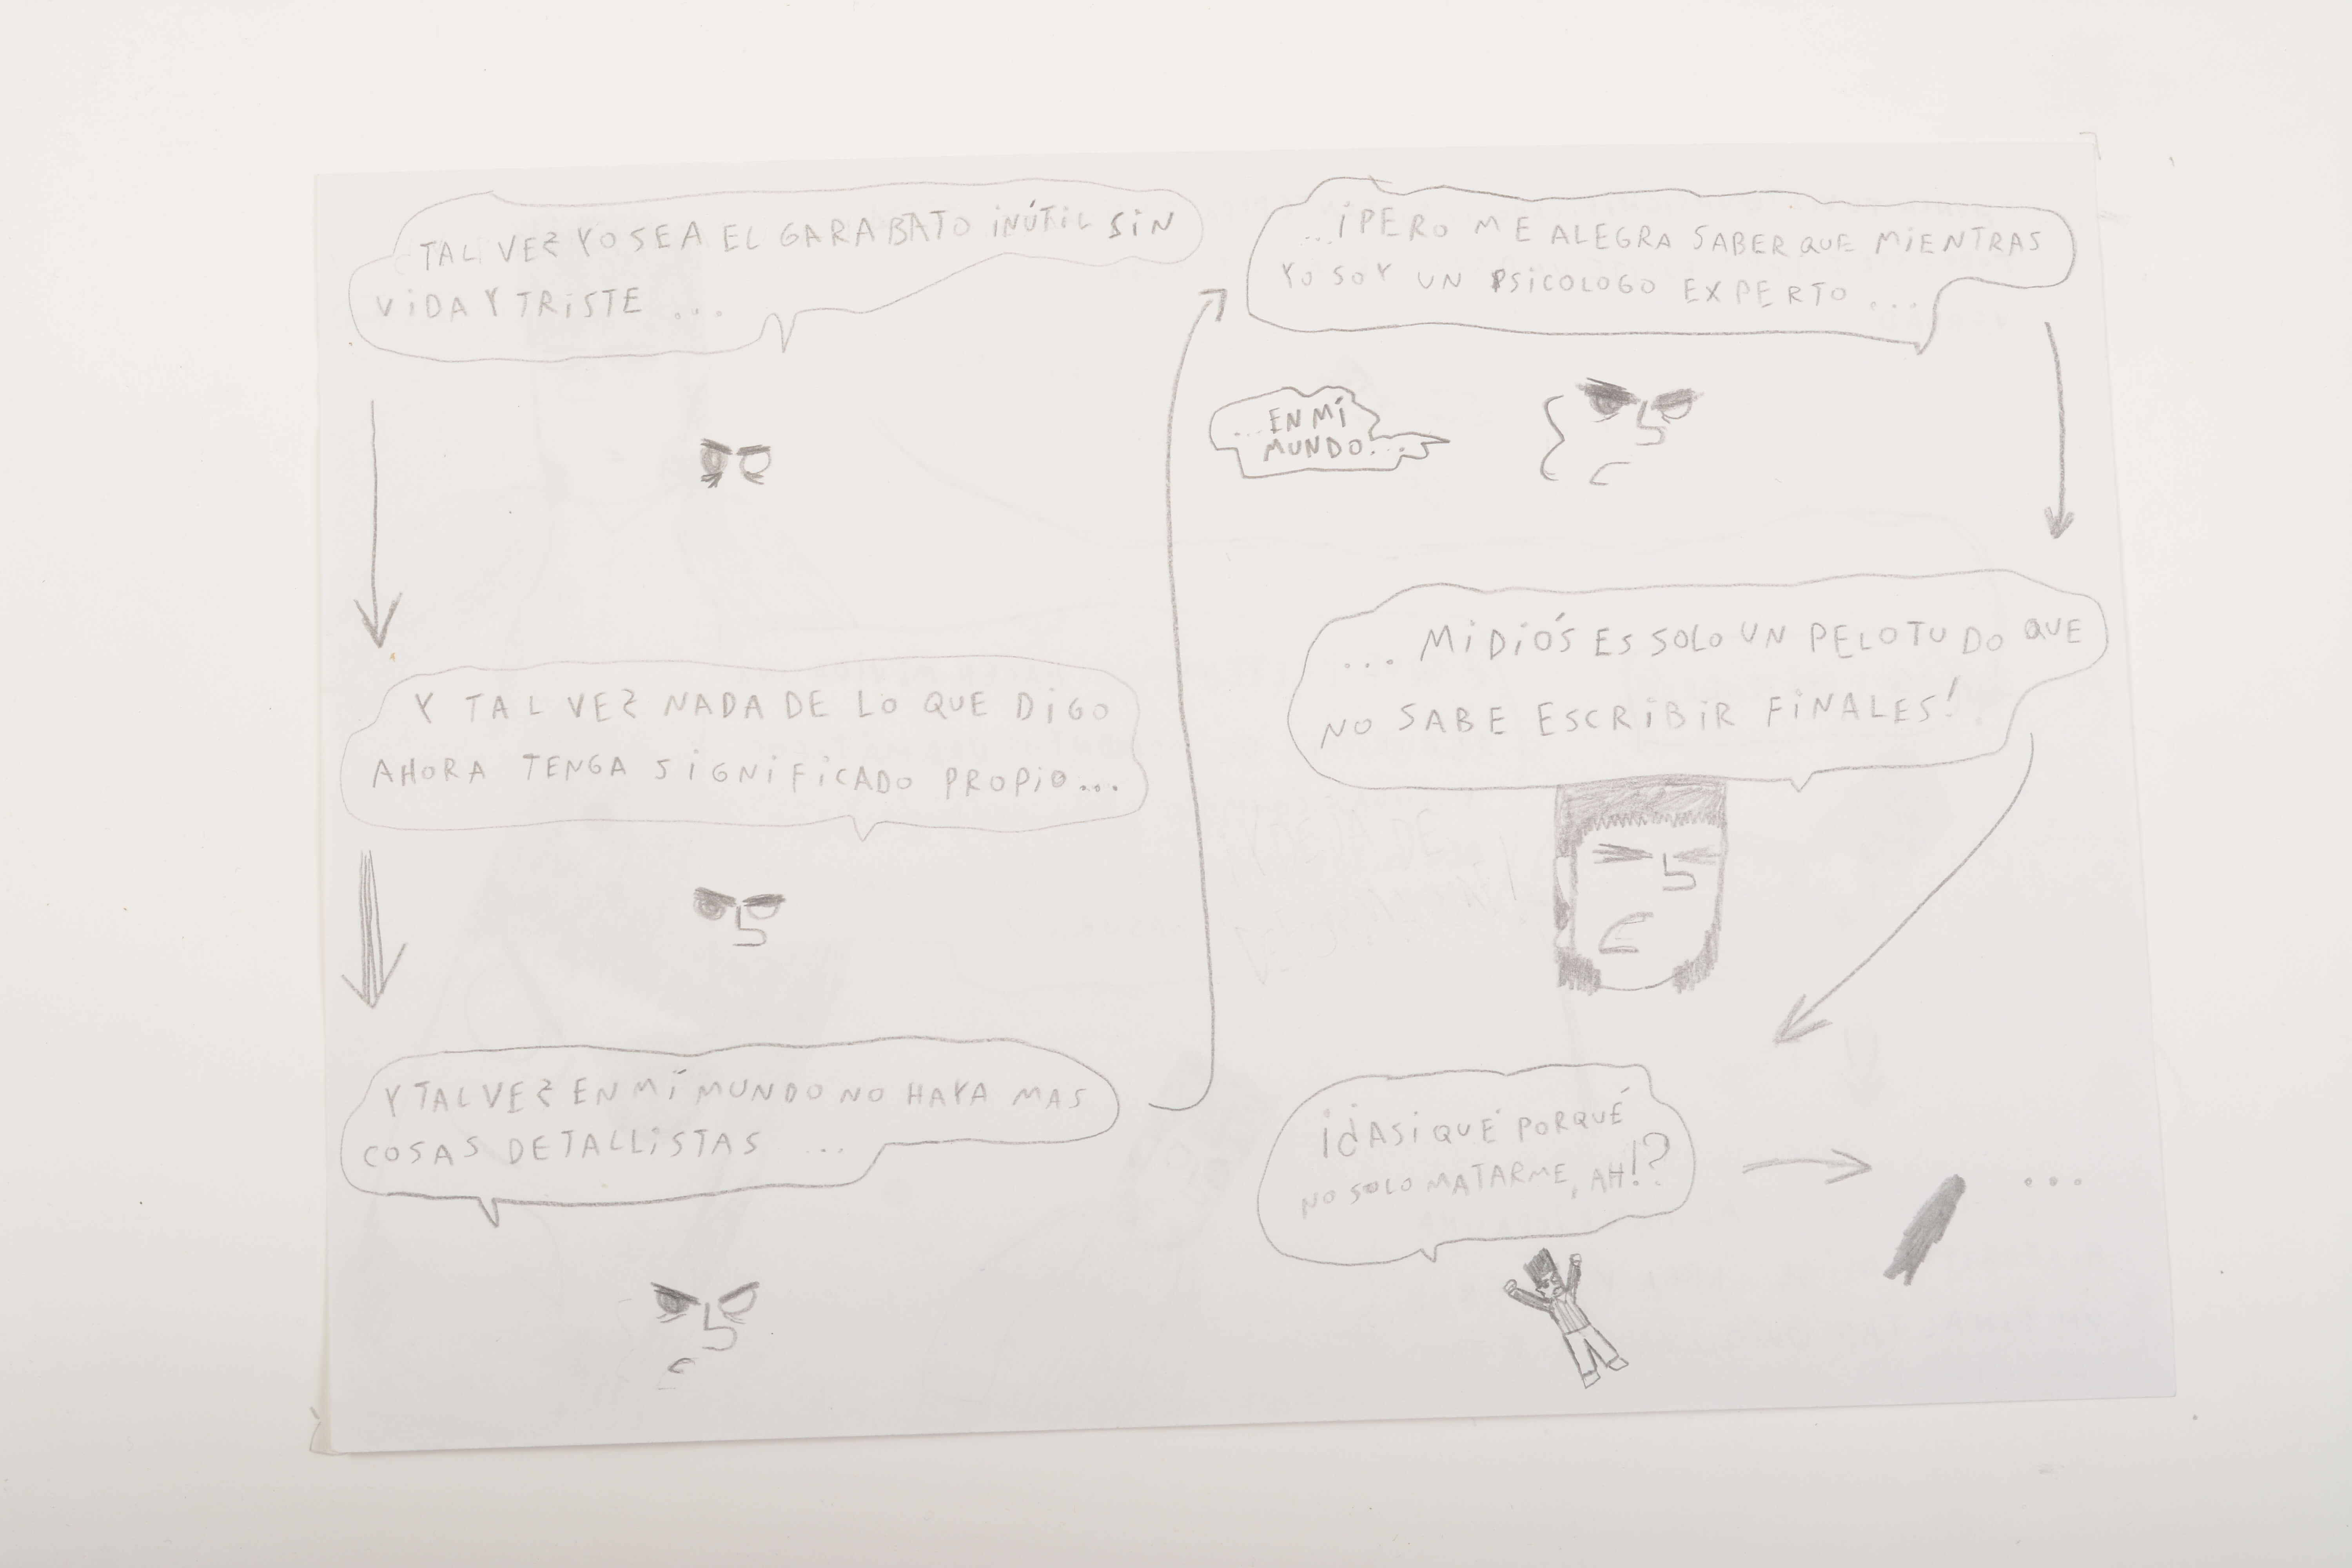 TAL VEZ YO SEA EL GARABATO INÚTIL SIN
VIDA Y TRISTE ...
Y TAL VEZ NADA DE LO QUE DIGO
AHORA TENGA SIGNIFICADO PROPIO...
Y TAL VEZ EN MÍ MUNDO NO HAYA MAS
COSAS DETALLISTAS ...
...¡PERO ME ALEGRA SABER QUE MIENTRAS
YO SOY UN PSICOLOGO EXPERTO ...
... EN MÍ
MUNDO...
... MI DIÓS ES SOLO UN PELOTUDO QUE
NO SABE ESCRIBIR FINALES!
¡¿ASI QUÉ PORQUÉ
NO SOLO MATARME, AH!?
...